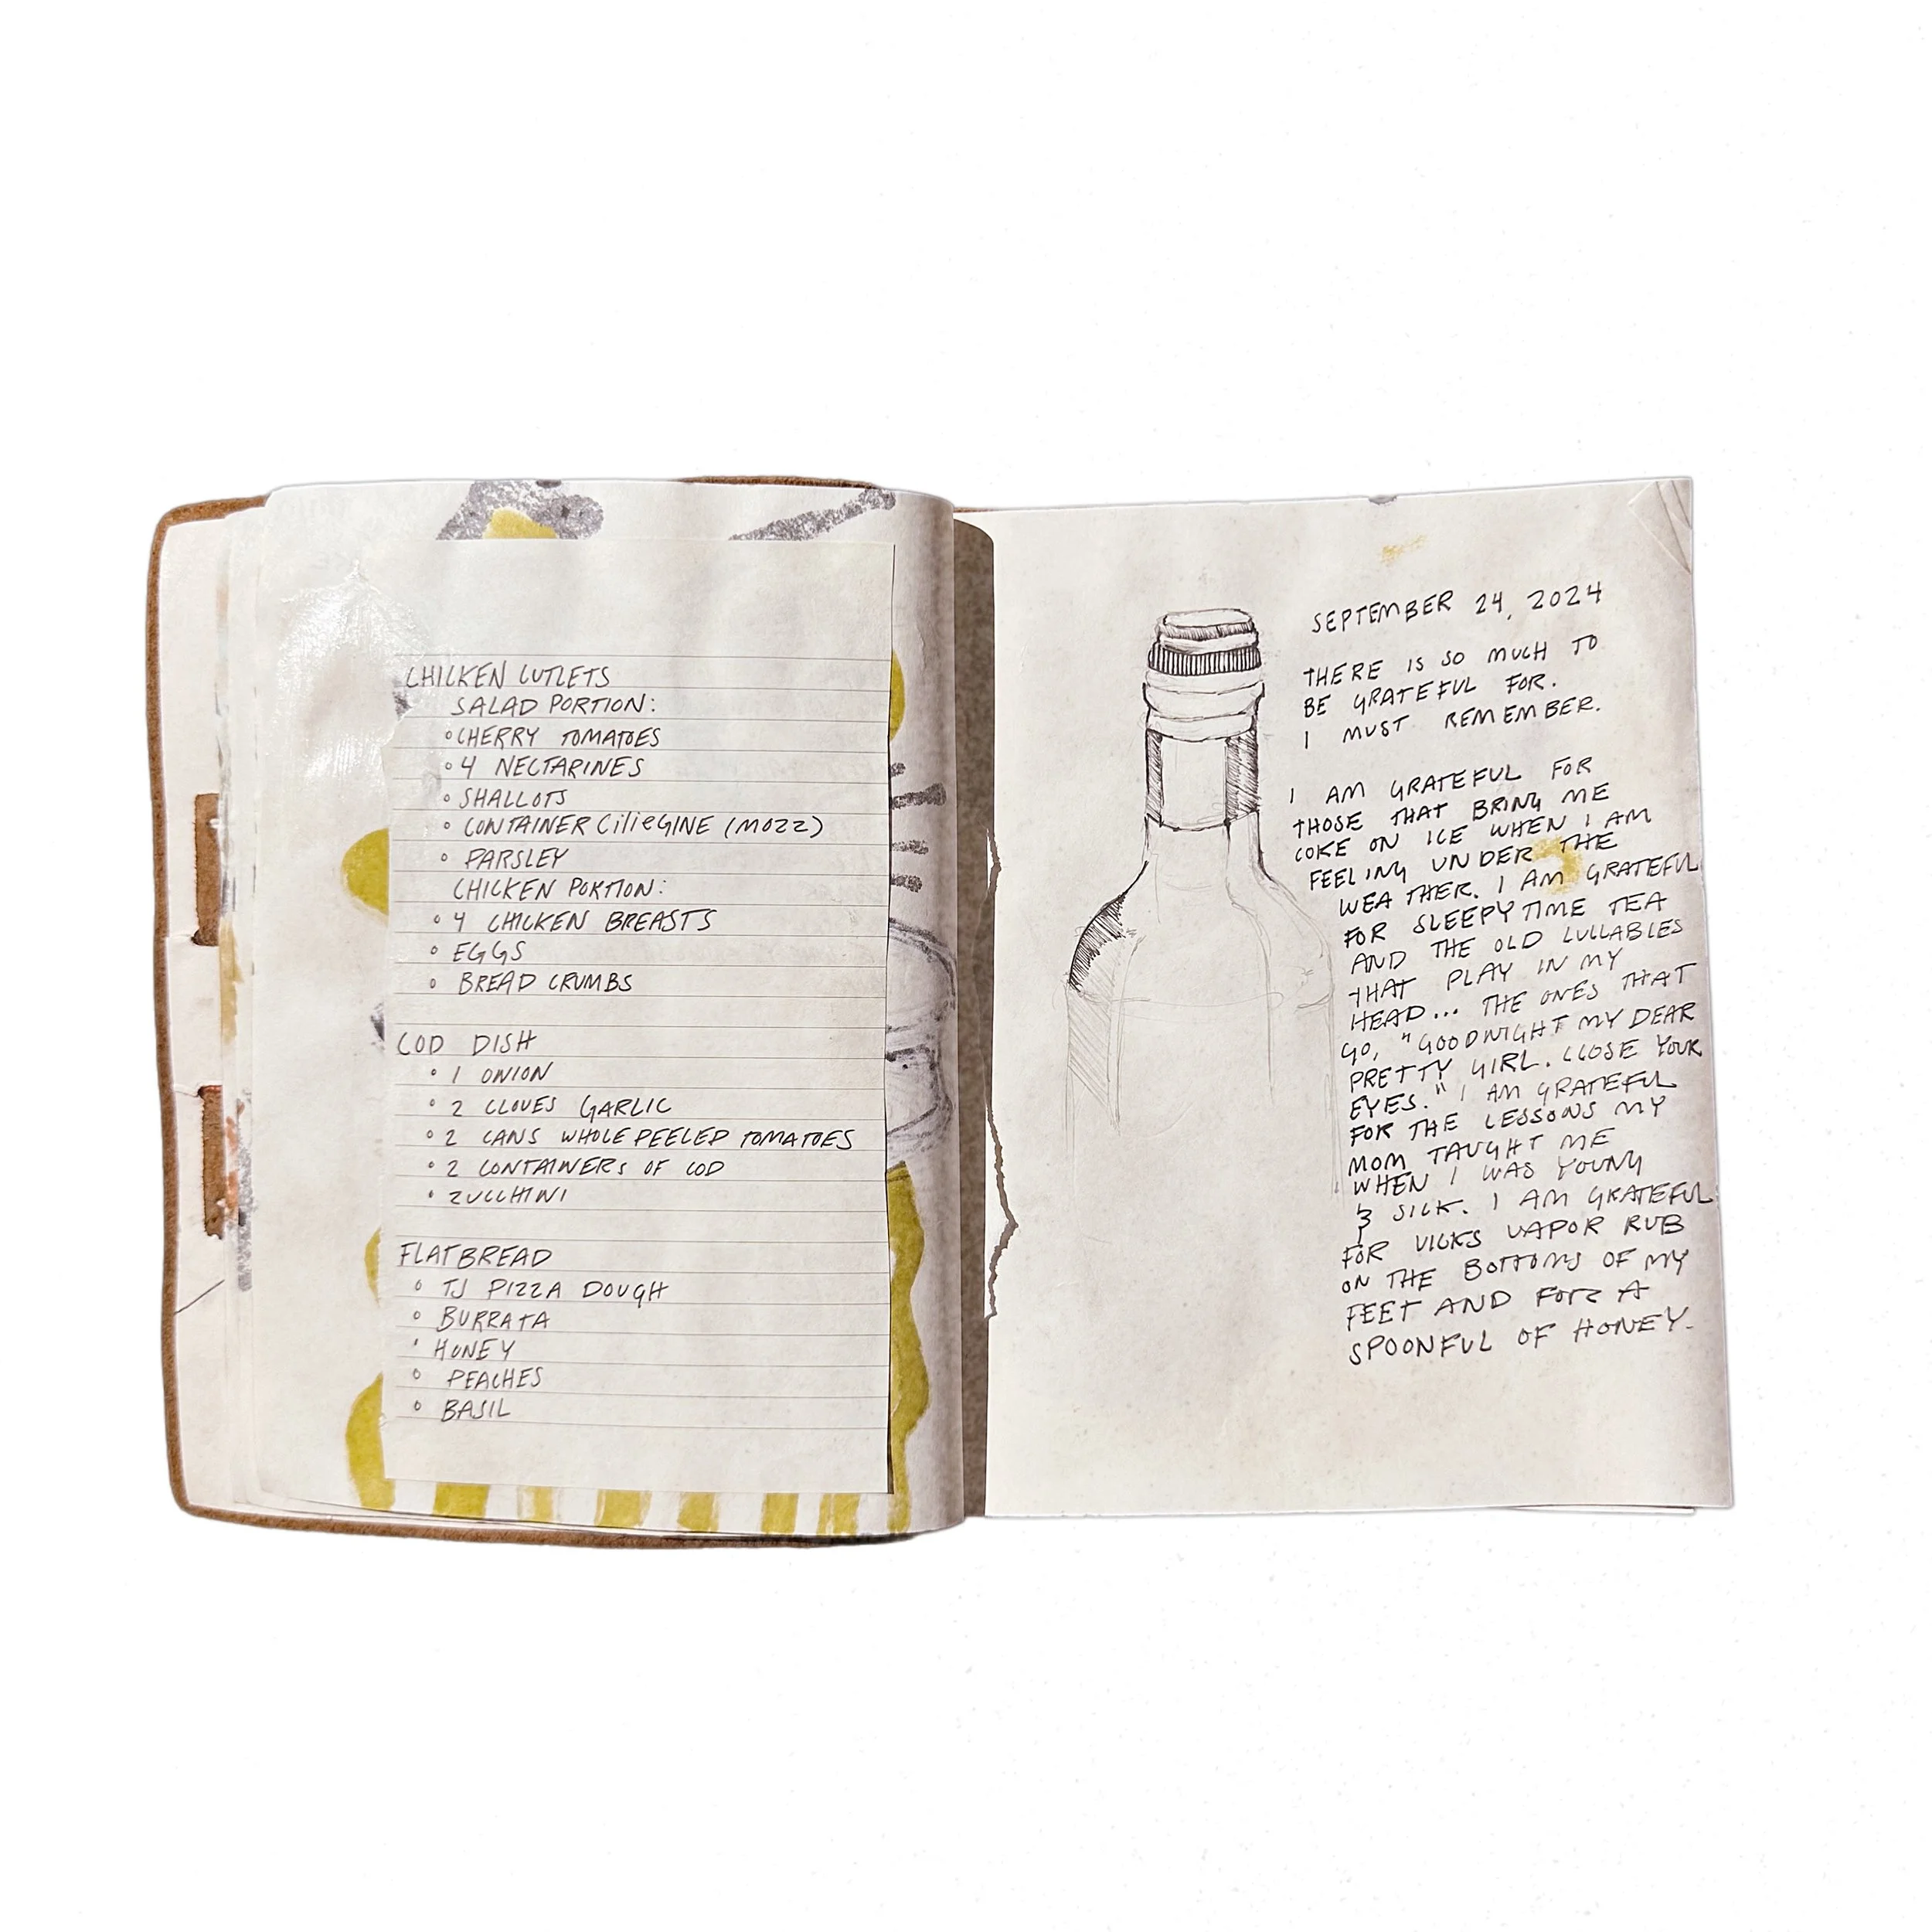 CHICKEN CUTLETS
SALAD PORTION:
◦ CHERRY TOMATOES
◦ 4 NECTARINES
◦ SHALLOTS
◦ CONTAINER CILIEGINE (MOZZ)
◦ PARSLEY
CHICKEN PORTION:
◦ 4 CHICKEN BREASTS
◦ EGGS
◦ BREAD CRUMBS
COD DISH
◦ 1 ONION
◦ 2 CLOVES GARLIC
◦ 2 CANS WHOLE PEELED TOMATOES
◦ 2 CONTAINERS OF COD
◦ ZUCCHINI
FLATBREAD
◦ TJ PIZZA DOUGH
◦ BURRATA
◦ HONEY
◦ PEACHES
◦ BASIL
SEPTEMBER 24, 2024
THERE IS SO MUCH TO
BE GRATEFUL FOR.
I MUST REMEMBER.
I AM GRATEFUL FOR
THOSE THAT BRING ME
COKE ON ICE WHEN I AM
FEELING UNDER THE
WEATHER. I AM GRATEFUL
FOR SLEEPYTIME TEA
AND THE OLD LULLABLES
THAT PLAY IN MY
HEAD... THE ONES THAT
GO, "GOODNIGHT MY DEAR
PRETTY GIRL. CLOSE YOUR
EYES." I AM GRATEFUL
FOR THE LESSONS MY
MOM TAUGHT ME
WHEN I WAS YOUNG
& SICK. I AM GRATEFUL
FOR VICKS VAPOR RUB
ON THE BOTTOMS OF MY
FEET AND FOR A
SPOONFUL OF HONEY.